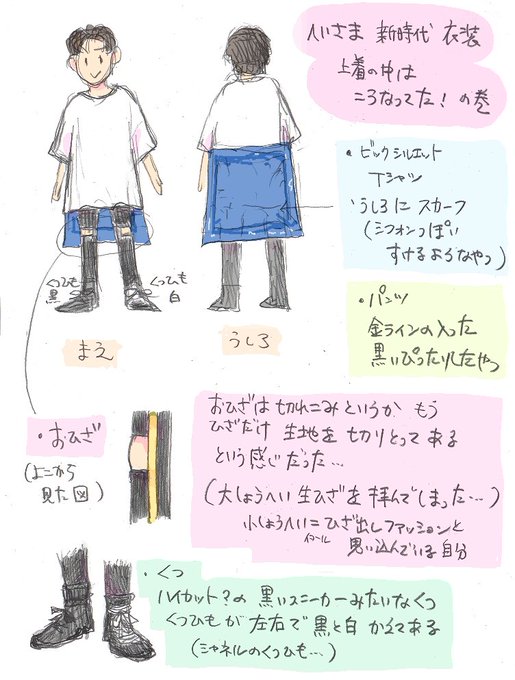 へいさま 新時代 衣装
上着の中は
こうなってた！の巻
・ビックシルエット
Tシャツ
うしろに スカーフ
(シフォンっぽい
すけるようなやつ)
・パンツ
金ラインの入った
黒いぴったりしたやつ
くつひも
黒
くつひも
白
まえ
うしろ
・おひざ
(よこから
見た図)
おひざは 切れこみというか もう
ひざだけ 生地を 切りとって ある
という感じだった…
(大しょうへい 生ひざを 拝んでしまった…)
小しょうへい＝ひざ出しファッションと
思い込んでいる自分
・くつ
ハイカット？の 黒いスニーカーみたいなくつ
くつひもが 左右で 黒と白 かえてある
(シャネルのくつひも…)